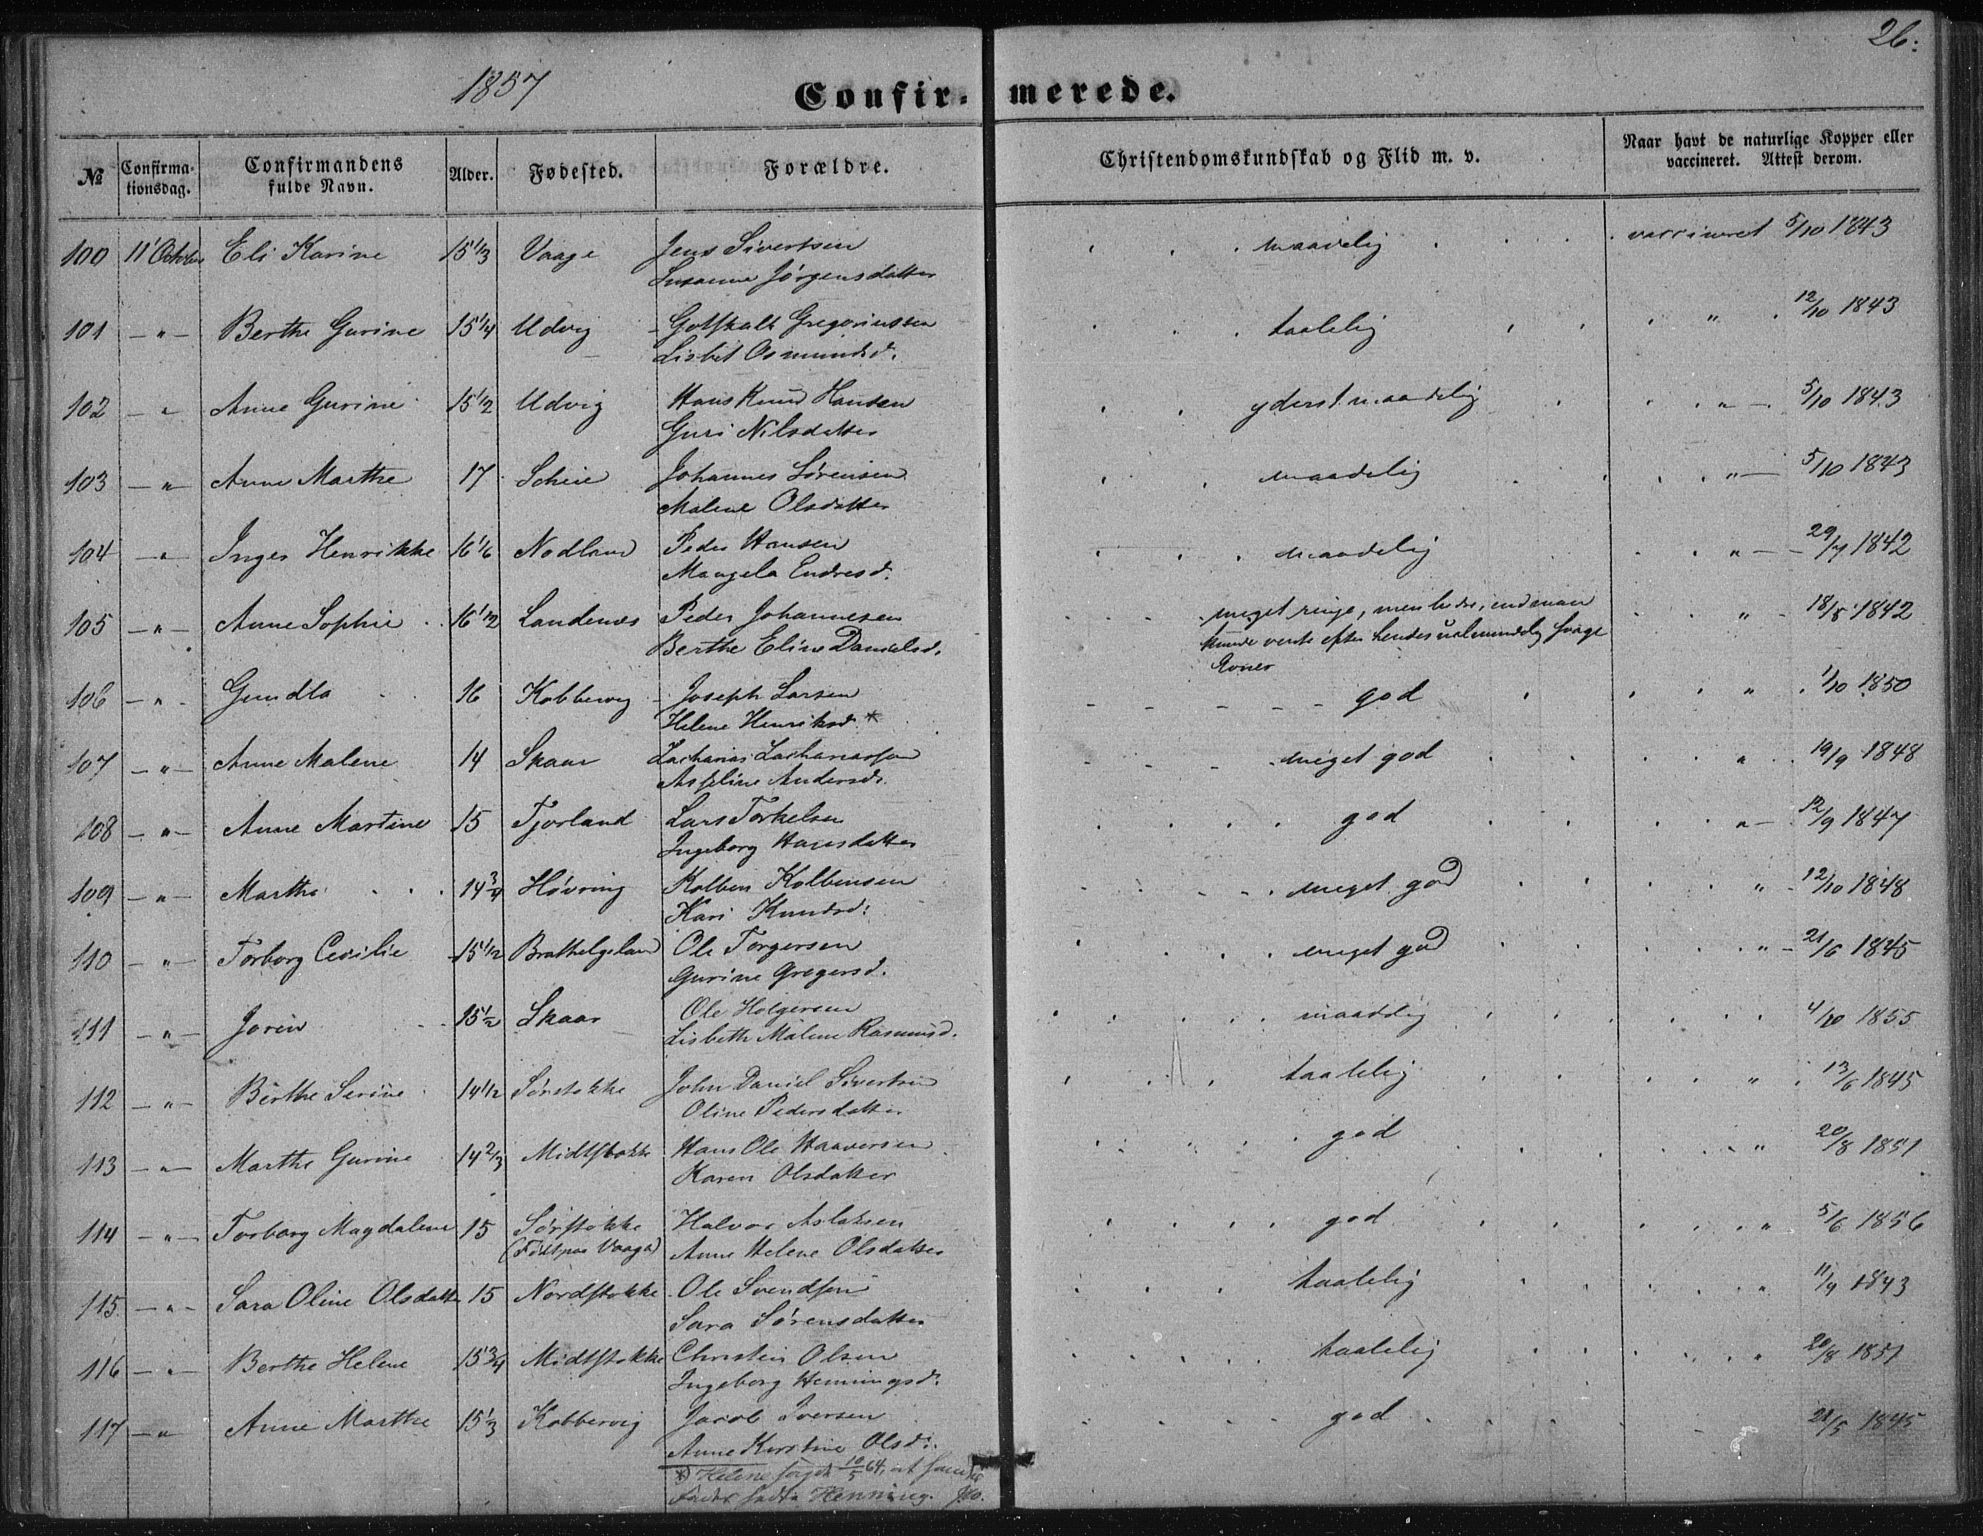 26.
1857
Confirmerede.
№ Confirmationsdag. Confirmandens fulde Navn. Alder. Fødested. Forældre. Christendomskundskab og Flid m. v. Naar havt de naturlige Kopper eller vaccineret. Attest derom.
100 11' October Eli Karine 15 1/3 Vaage Jens Sivertsen maadelig vaccineret 5/10 1843
Susanne Jørgensdatter
101 – " – Berthe Gurine 15 1/4 Udvig Gotskalk Gregoriussen taalelig " 12/10 1843
Lisbet Osmundsd.
102 " Anne Gurine 15 1/2 Udvig Hans Knud Hansen yderst maadelig " 5/10 1843
Guri Nilsdatter
103 – " – Anne Marthe 17 Scheie Johannes Sørensen maadelig " 5/10 1843
Malene Olsdatter
104 – " Inger Henrikke 16 1/6 Nodland Peder Hansen maadelig " 29/7 1842
Mangela Endresd.
105 – " – Anne Sophie 16 1/2 Landenæs Peder Johannesen meget ringe, men bedre, end man " 18/8 1842
Berthe Eline Danielsd. kunde vente efter hendes ualmindelig svage
Evner
106 – " – Gundla 16 Kobbervig Joseph Larsen god " 1/10 1850
Helene Henriksd. *
107 – " – Anne Malene 14 Skaar Zacharias Zachariassen meget god " 19/9 1848
Asseline Andersd.
108 – " – Anne Martine 15 Tjorland Lars Torkelsen god " 12/9 1847
Ingeborg Hansdatter
109 – " – Marthe 14 3/4 Høvring Kolben Kolbensen meget god " 12/10 1848
Kari Knudsd:
110 – " – Torborg Cecilie 15 1/2 Brathelgeland Ole Torgersen meget god " 21/6 1845
Gurine Gregersd.
111 – " – Joren 15 1/2 Skaar Ole Holgersen maadelig 4/10 1855
Lisbeth Malene Rasmusd.
112 – " – Berthe Serine 14 1/2 Sørstokke John Daniel Sivertsen taalelig " 13/6 1845
Oline Pedersdatter
113 – " – Marthe Gurine 14 2/3 Midtstokke Hans Ole Haaversen god " 20/8 1851
Karen Olsdatter
114 – " – Torborg Magdalene 15 Sørstokke Halvor Aslaksen god " 5/6 1856
(Født paa Vaage) Anne Helene Olsdatter
115 – " – Sara Oline Olsdatter 15 Nordstokke Ole Svendsen taalelig " 11/9 1843
Sara Sørensdatter
116 – " – Berthe Helene 15 3/4 Midtstokke Christen Olsen taalelig " 20/8 1851
Ingeborg Henningsd.
117 – " Anne Marthe 15 1/3 Kobbervig Jacob Iversen god 21/5 1845
Anne Kirstine Olsd.
*) Helene sagde 10/5 64, at hendes
Fader hedte Henning.